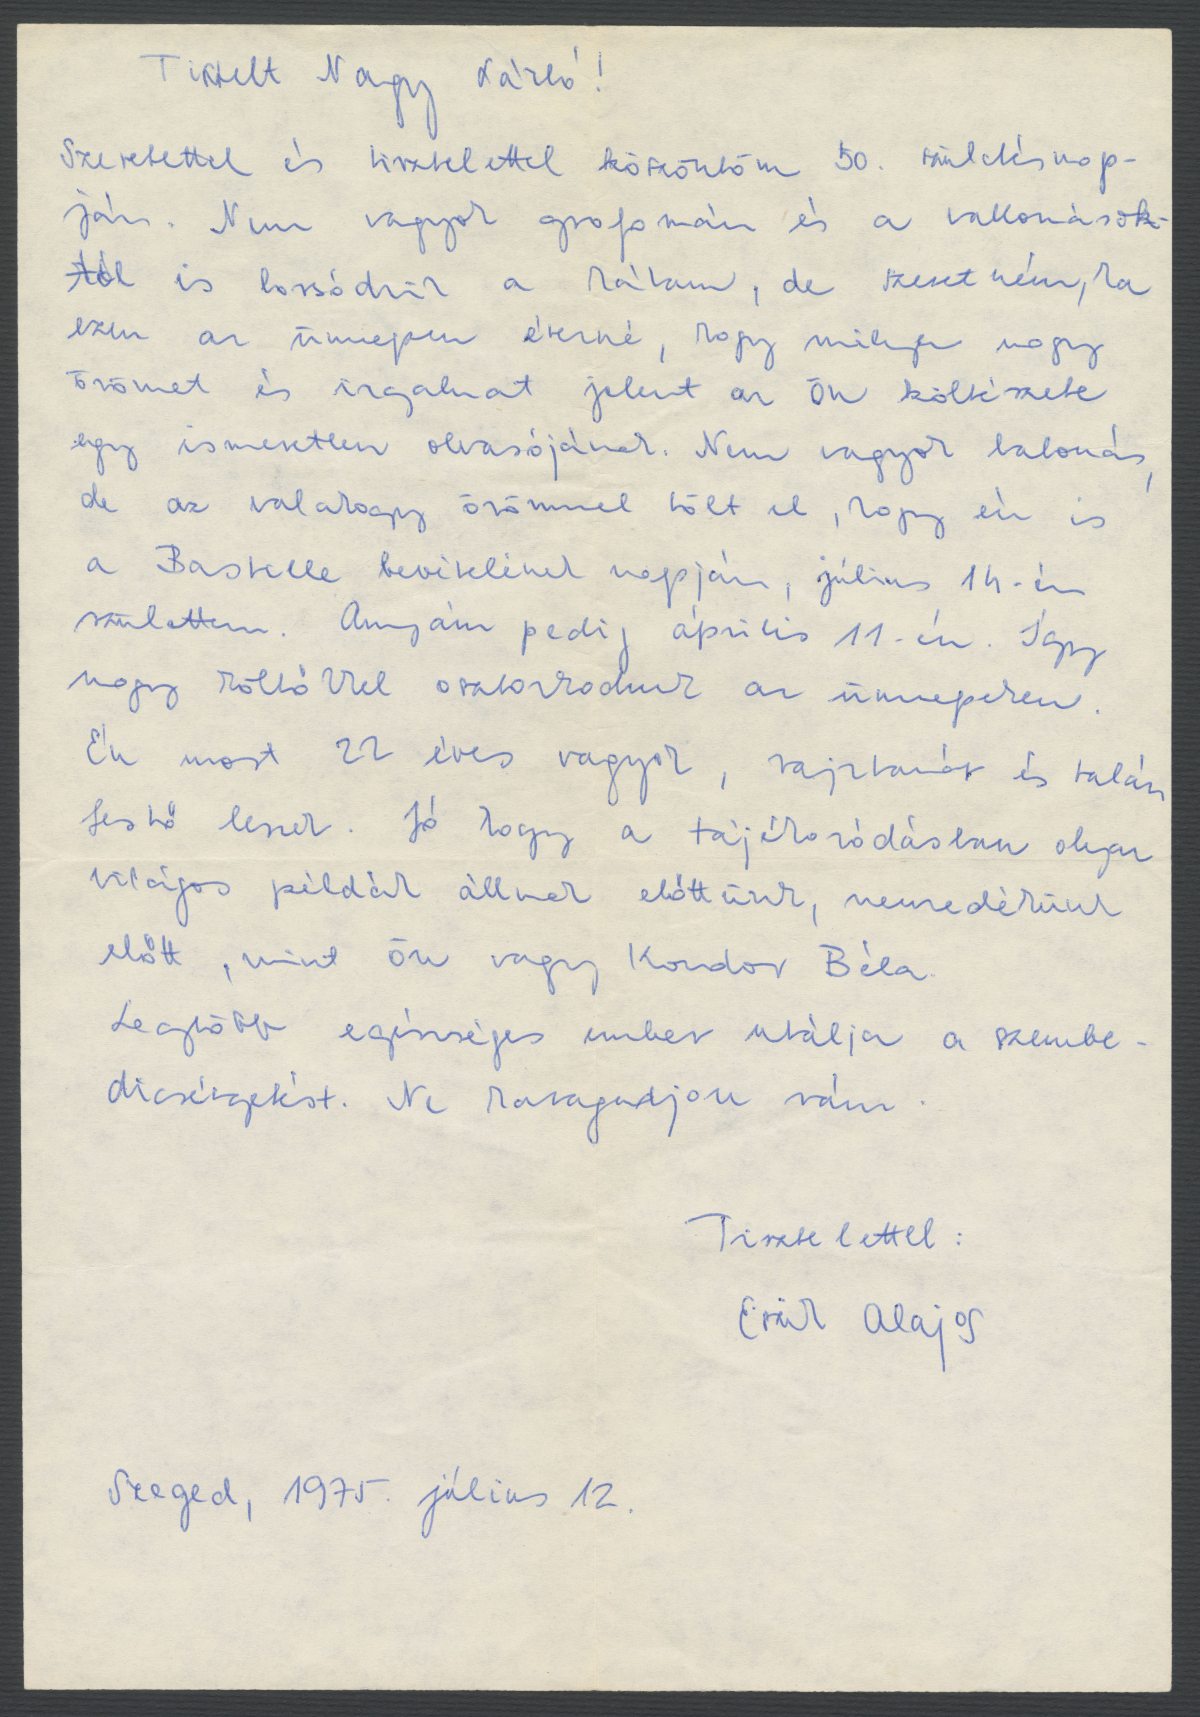 Tisztelt Nagy László!
Szeretettel és tisztelettel köszöntöm 50. születésnap-
ján. Nem vagyok grafomán és a vallomások-
tól is borsódzik a hátam, de szeretném, ha
ezen az ünnepen érezné, hogy milyen nagy
örömet és irgalmat jelent az Ön költészete
egy ismeretlen olvasójának. Nem vagyok babonás,
de az valahogy örömmel tölt el, hogy én is
a Bastille bevételének napján, július 14-én
születtem. Anyám pedig április 11-én. Így
nagy költőkkel osztozkodunk az ünnepeken.
Én most 22 éves vagyok, rajztanár és talán
festő leszek. Jó hogy a tájékozódásban olyan
világos példák állnak előttünk, nemzedékünk
előtt, mint Ön vagy Kondor Béla.
Legtöbb egészséges ember utálja a szembe-
dicsérgetést. Ne haragudjon rám.
Tisztelettel:
Alajos
Szeged, 1975. július 12.